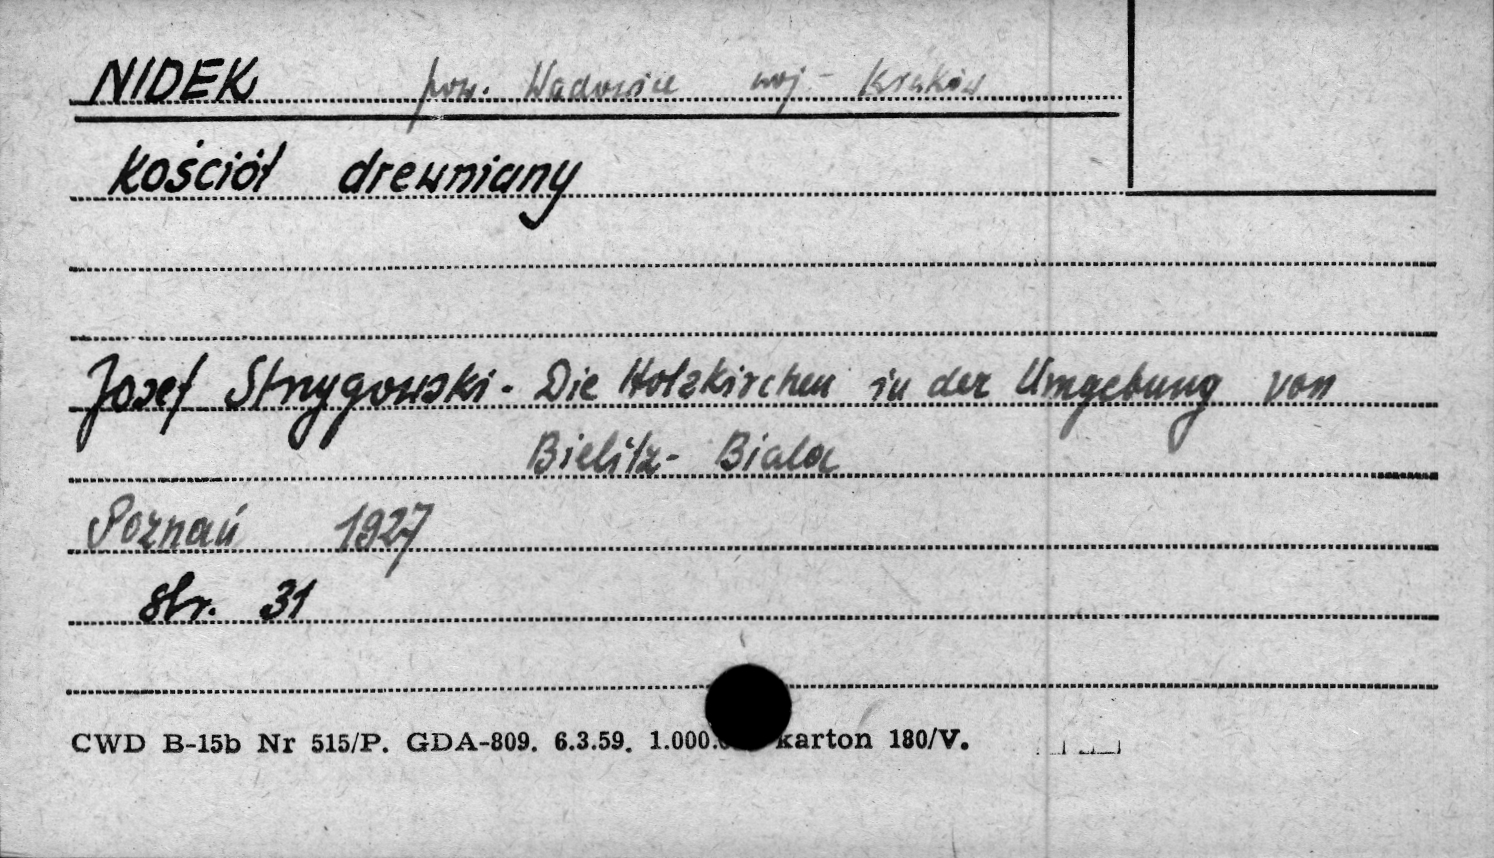 NIDEK pow. Wadowice woj. Kraków
kościół drewniany
Josef Strzygowski - Die Holzkirchen in der Umgebung von
Bielitz - Biala
Poznań 1927
str. 31
CWD B-15b Nr 515/P. GDA-809. 6.3.59. 1.000. karton 180/V.